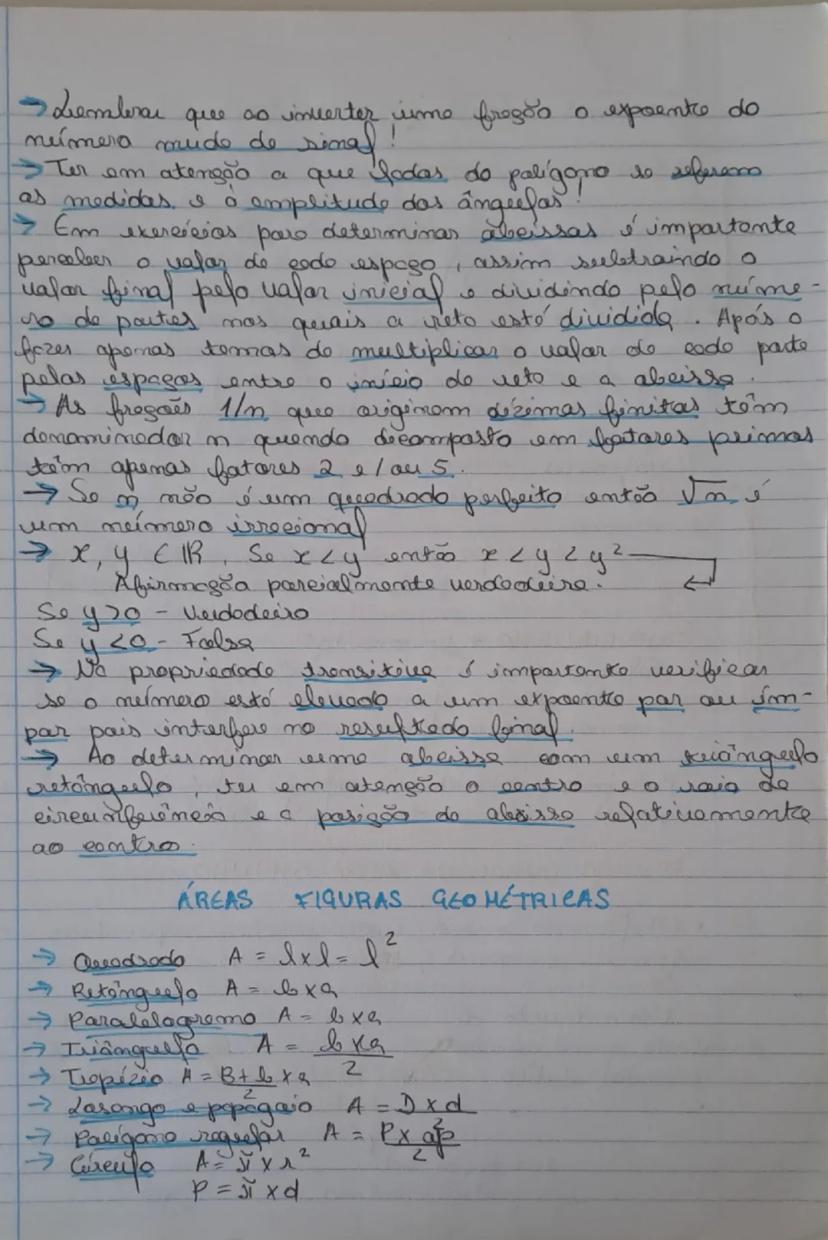 → Lembrar que ao inverter uma fração o expoente do
número muda de sinal!
→ Ter em atenção a que lados do polígono se referem
as medidas e à amplitude dos ângulos!
→ Em exercícios para determinar abcissas é importante
perceber o valor de cada espaço, assim subtraindo o
valor final pelo valor inicial e dividindo pelo núme-
ro de partes nas quais a reta está dividida. Após o
fazer apenas temos de multiplicar o valor de cada parte
pelos espaços entre o início da reta e a abcissa.
→ As frações 1/n que originam dízimas finitas têm
denominador n quando decomposto em fatores primos
têm apenas fatores 2 e/ou 5.
→ Se n não é um quadrado perfeito então √n é
um número irracional
→ x, y ∈ IR, Se x < y então x < y < y²
Afirmação parcialmente verdadeira.
Se y > 0 - Verdadeiro
Se y < 0 - Falso
→ Na propriedade transitiva é importante verificar
se o número está elevado a um expoente par ou ím-
par pois interfere no resultado final.
→ Ao determinar uma abcissa com um triângulo
retângulo, ter em atenção o centro e o raio da
circunferência e a posição da abcissa relativamente
ao centro.
ÁREAS FIGURAS GEOMÉTRICAS
→ Quadrado A = l x l = l²
→ Retângulo A = b x a
→ Paralelogramo A = b x a
→ Triângulo A = b x a / 2
→ Trapézio A = B + b / 2 x a
→ Losango e papagaio A = D x d / 2
→ Polígono regular A = P x ap / 2
→ Círculo A = π x r²
P = π x d